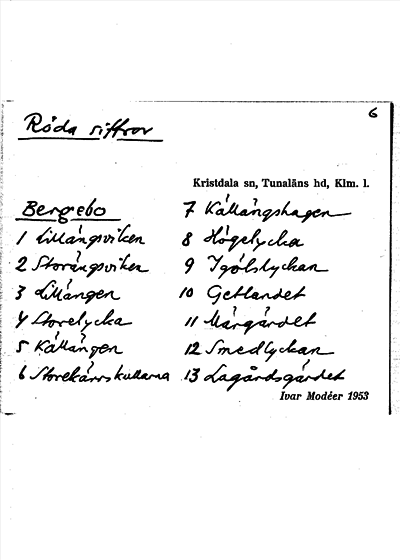 6
Röda siffror
Kristdala sn, Tunaläns hd, Klm. l.
Bergebo
1 Lillängsviken
2 Storängsviken
3 Lillängen
4 Storelycka
5 Källängen
6 Storekärrskullarna
7 Källängshagen
8 Högelycka
9 Igölslyckan
10 Getlandet
11 Märgärdet
12 Smedlyckan
13 Lagårdsgärdet
Ivar Modéer 1953